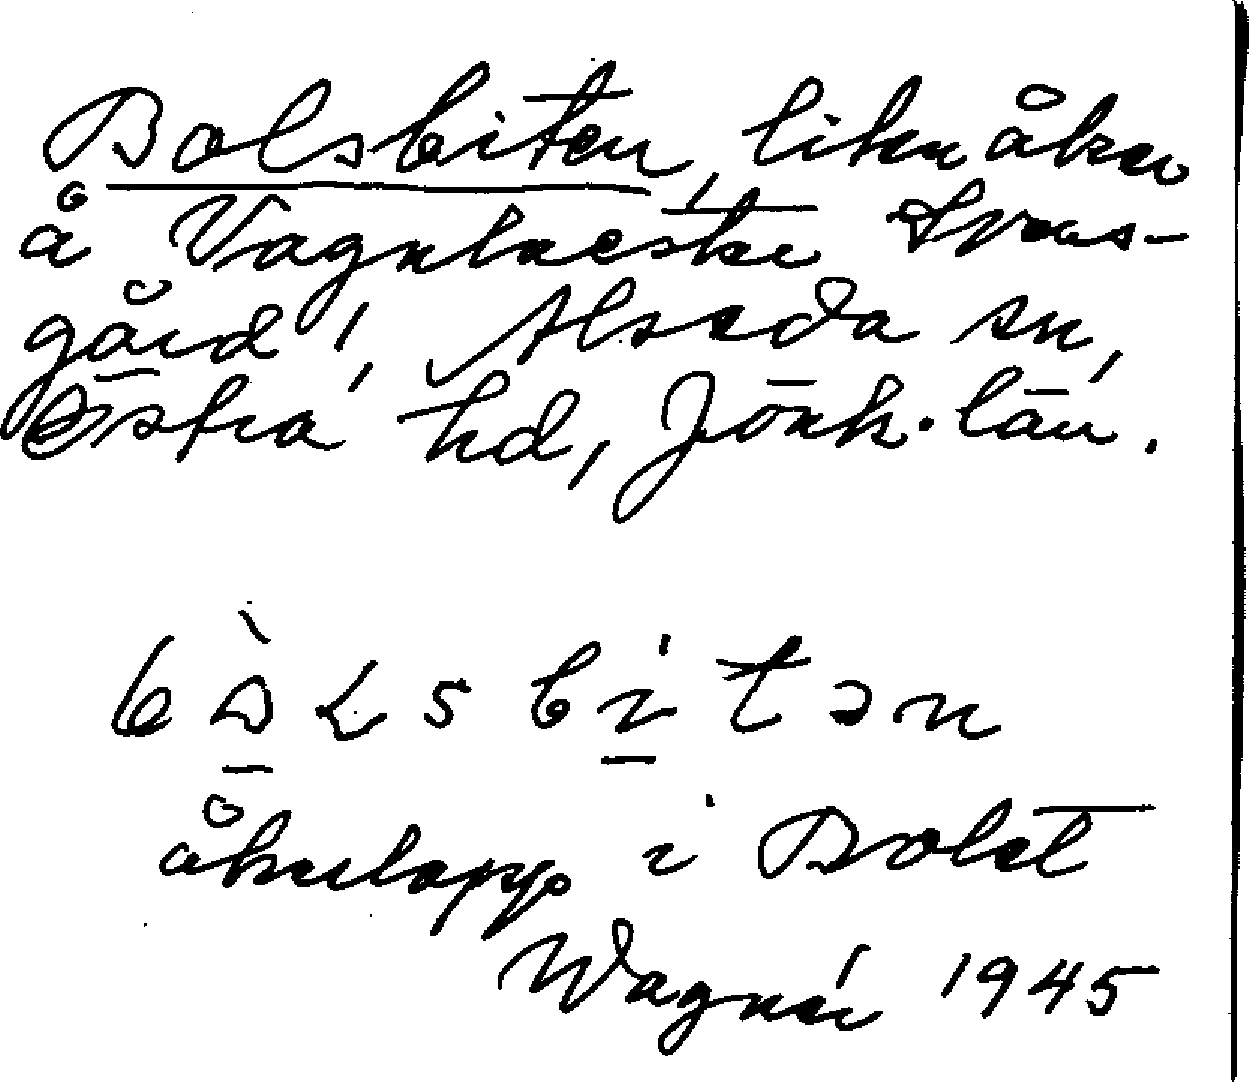 Bolsbiten, liten åker
å Vagnhester Svens-
gård!, Alseda sn,
Östra hd, Jönk. län.
bòlsbitən
åkerlapp i Bolet
Wagnér 1945